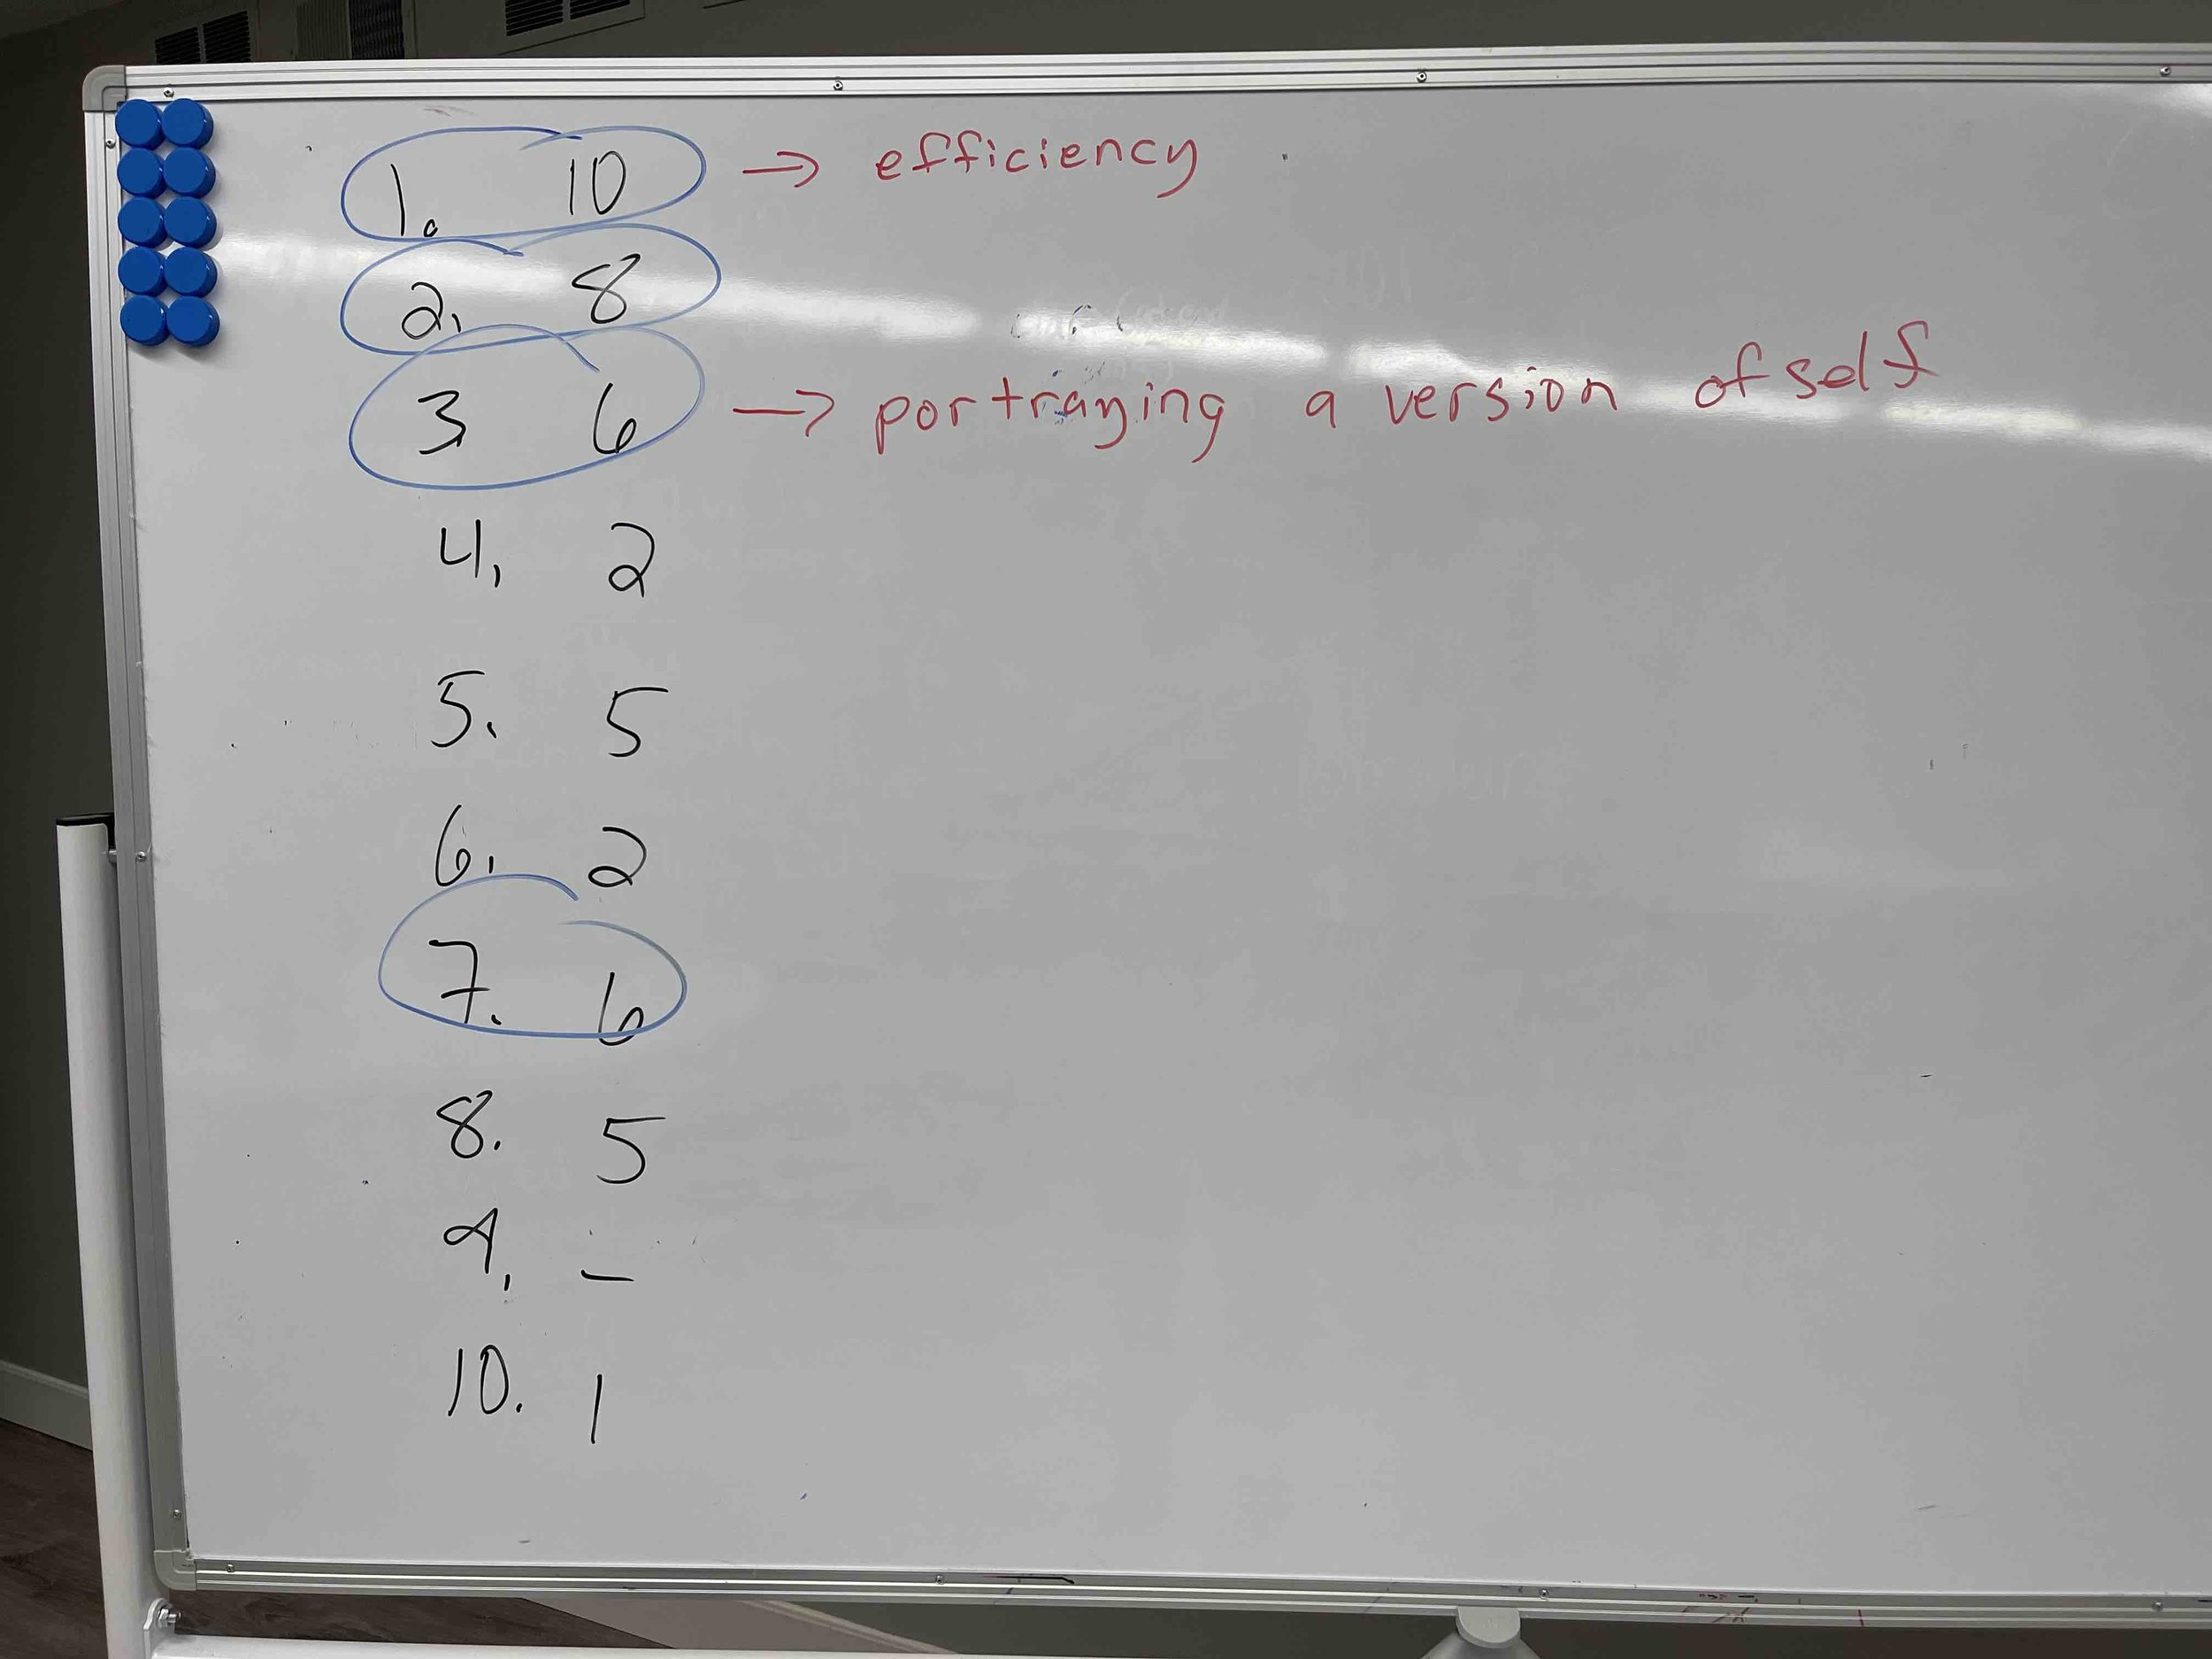 1. 10 → efficiency
2. 8
3 6 → portraying a version of self
4. 2
5. 5
6. 2
7. 6
8. 5
9. –
10. 1